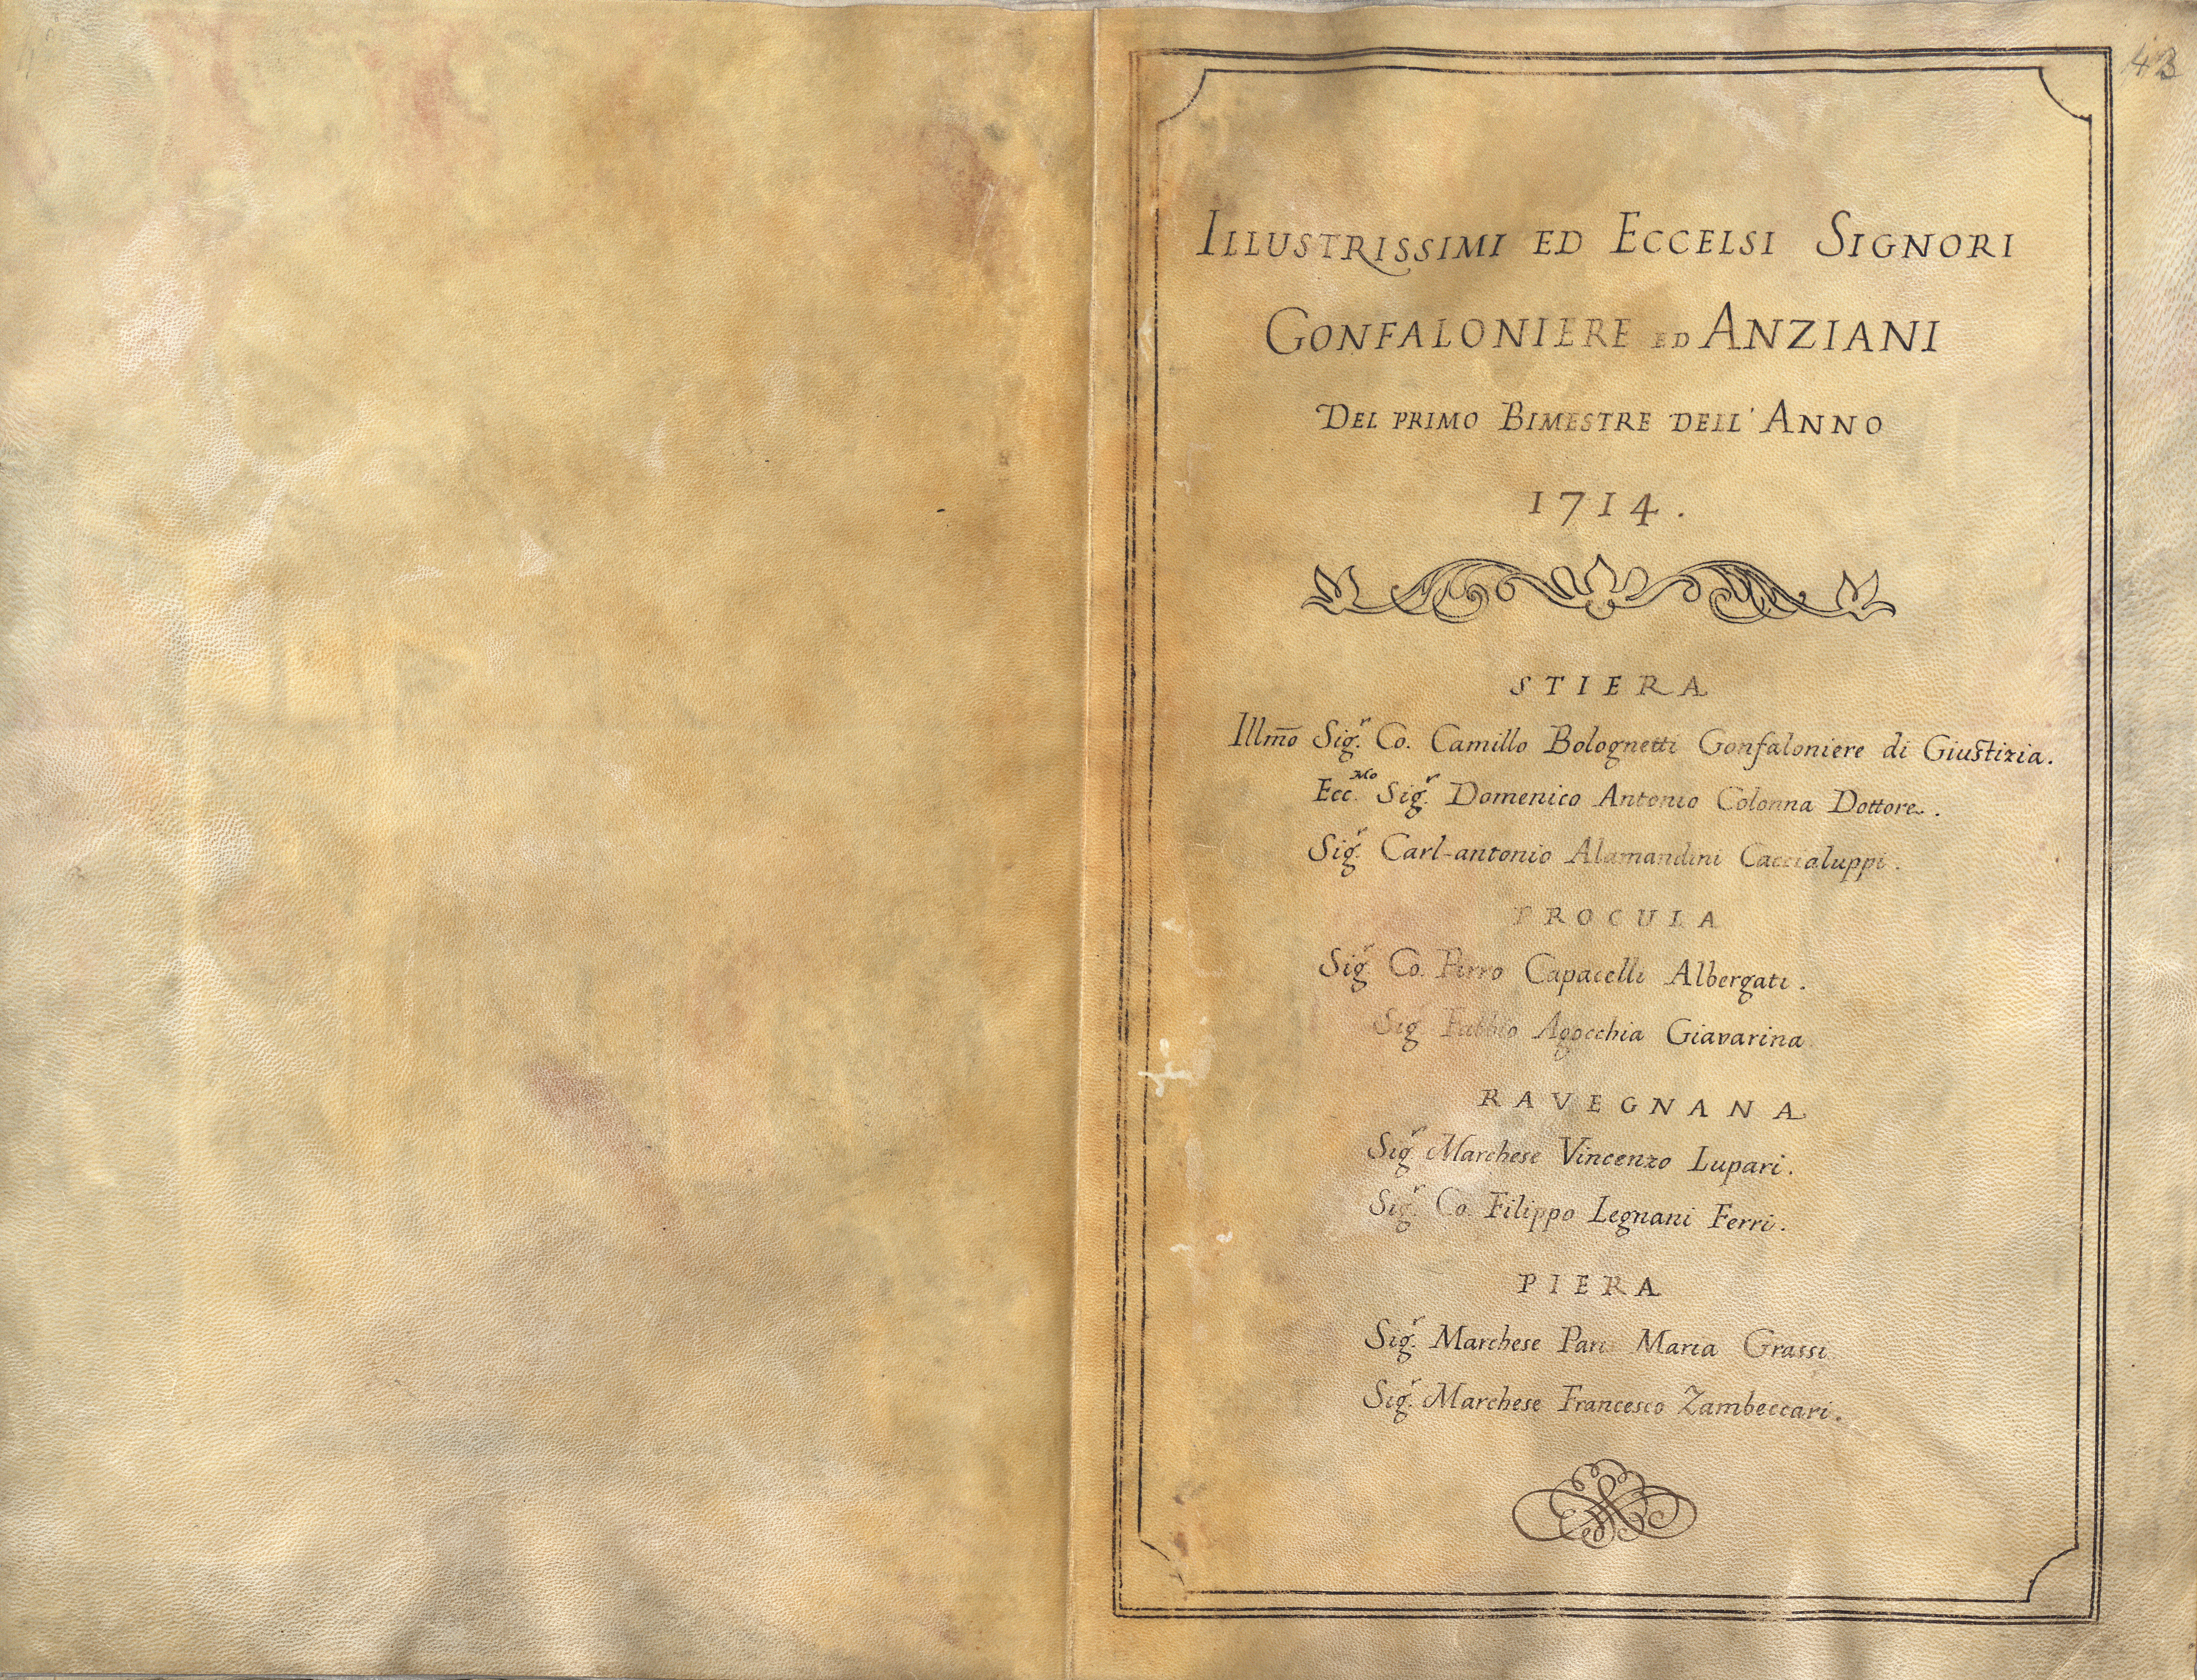 43
ILLUSTRISSIMI ED ECCELSI SIGNORI
GONFALONIERE ED ANZIANI
DEL PRIMO BIMESTRE DELL' ANNO
1714.
STIERA
Illm̃o Sig.r Co. Camillo Bolognetti Gonfaloniere di Giustizia.
Ecc.Mo Sig.r Domenico Antonio Colonna Dottore.
Sig.r Carl-antonio Alamandini Caccialuppi.
PROCULA
Sig.r Co. Pirro Capacelli Albergati.
Sig Agocchia Giavarina
RAVEGNANA
Sig.r Marchese Vincenzo Lupari.
Sig.r Co. Filippo Legnani Ferri.
PIERA
Sig.r Marchese Paris Maria Grassi
Sig.r Marchese Francesco Zambeccari.